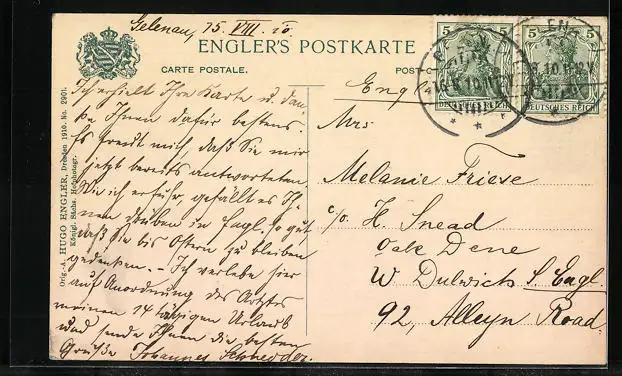 Gelenau, 15. VIII. 10.
ENGLER'S POSTKARTE
CARTE POSTALE.
POST
Ich erhielt Ihre Karte u. dan-
ke Ihnen dafür bestens.
Es freut mich, daß Sie mir
jetzt bereits antworteten.
Wie ich erfuhr, gefällt es Ih-
nen drüben in Engl. so gut,
daß Sie bis Ostern zu bleiben
gedenken. – Ich verlebe hier
auf Anordnung des Arztes
meinen 14 tägigen Urlaub
und sende Ihnen die besten
Grüße Johannes
Orig.-A. HUGO ENGLER, Dresden 1910. No. 2901.
Königl. Sächs. Hofphotogr.
5 5
DEUTSCHES REICH
5 5
DEUTSCHES REICH
Mrs.
Melanie Friese
c/o H. Snead
Oak Dene
W Dulwich S. Engl.
92, Alleyn Road